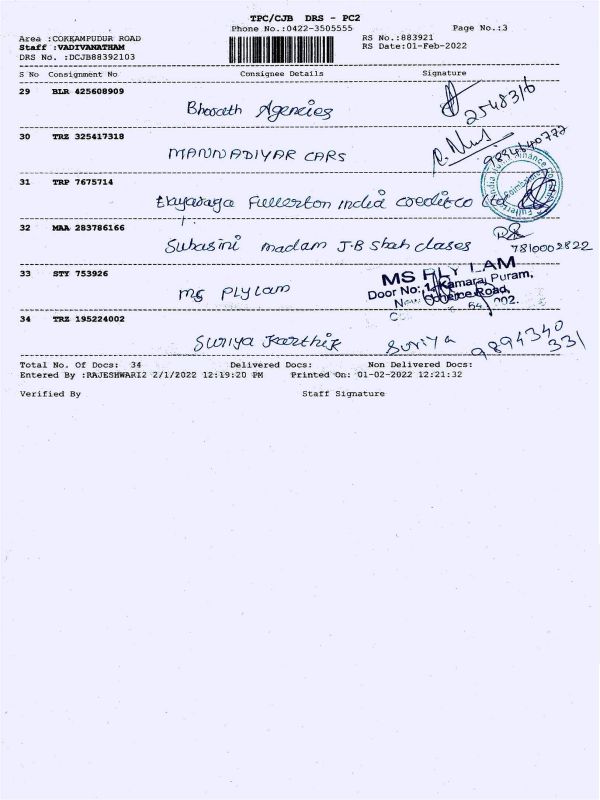 TPC/CJB DRS - PC2
Phone No.:0422-3505555
Page No.:3
Area :COKKAMPUDUR ROAD
RS No.:883921
Staff :VADIVANATHAM
RS Date:01-Feb-2022
DRS No. :DCJB88392103
S No Consignment No Consignee Details Signature
29 BLR 425608909
Bharath Agencies
2548316
30 TRZ 325417318
MANNADIYAR CARS
9834640772
31 TRP 7675714
Fullerton india credit co Ltd
32 MAA 283786166
Subasini madam J.B Shah clases
7810002822
33 STY 753926
MS PLYLAM
MS PLY LAM
Door No: 1, Kamaraj Puram,
Road,
34 TRZ 195224002
Suriya Karthik Suriya
9894340
331
Total No. Of Docs: 34 Delivered Docs: Non Delivered Docs:
Entered By :RAJESHWARI2 2/1/2022 12:19:20 PM Printed On: 01-02-2022 12:21:32
Verified By Staff Signature